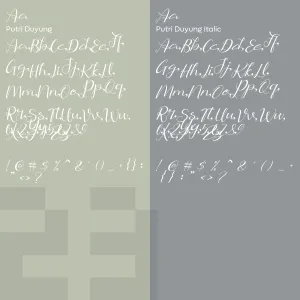 Aa
Putri Duyung
Aa.Bb.Cc.Dd.Ee.Ff.
Gg.Hh.Ii.Jj.Kk.Ll.
Mm.Nn.Oo.Pp.Qq.
Rr.Ss.Tt.Uu.Vv.Ww.
! @ # $ % ^ & * ( ) _ + { } :
" < > ?
Aa
Putri Duyung Italic
Aa.Bb.Cc.Dd.Ee.Ff.
Gg.Hh.Ii.Jj.Kk.Ll.
Mm.Nn.Oo.Pp.Qq.
Rr.Ss.Tt.Uu.Vv.Ww.
! @ # $ % ^ & * ( ) _ +
{ } : " < > ?